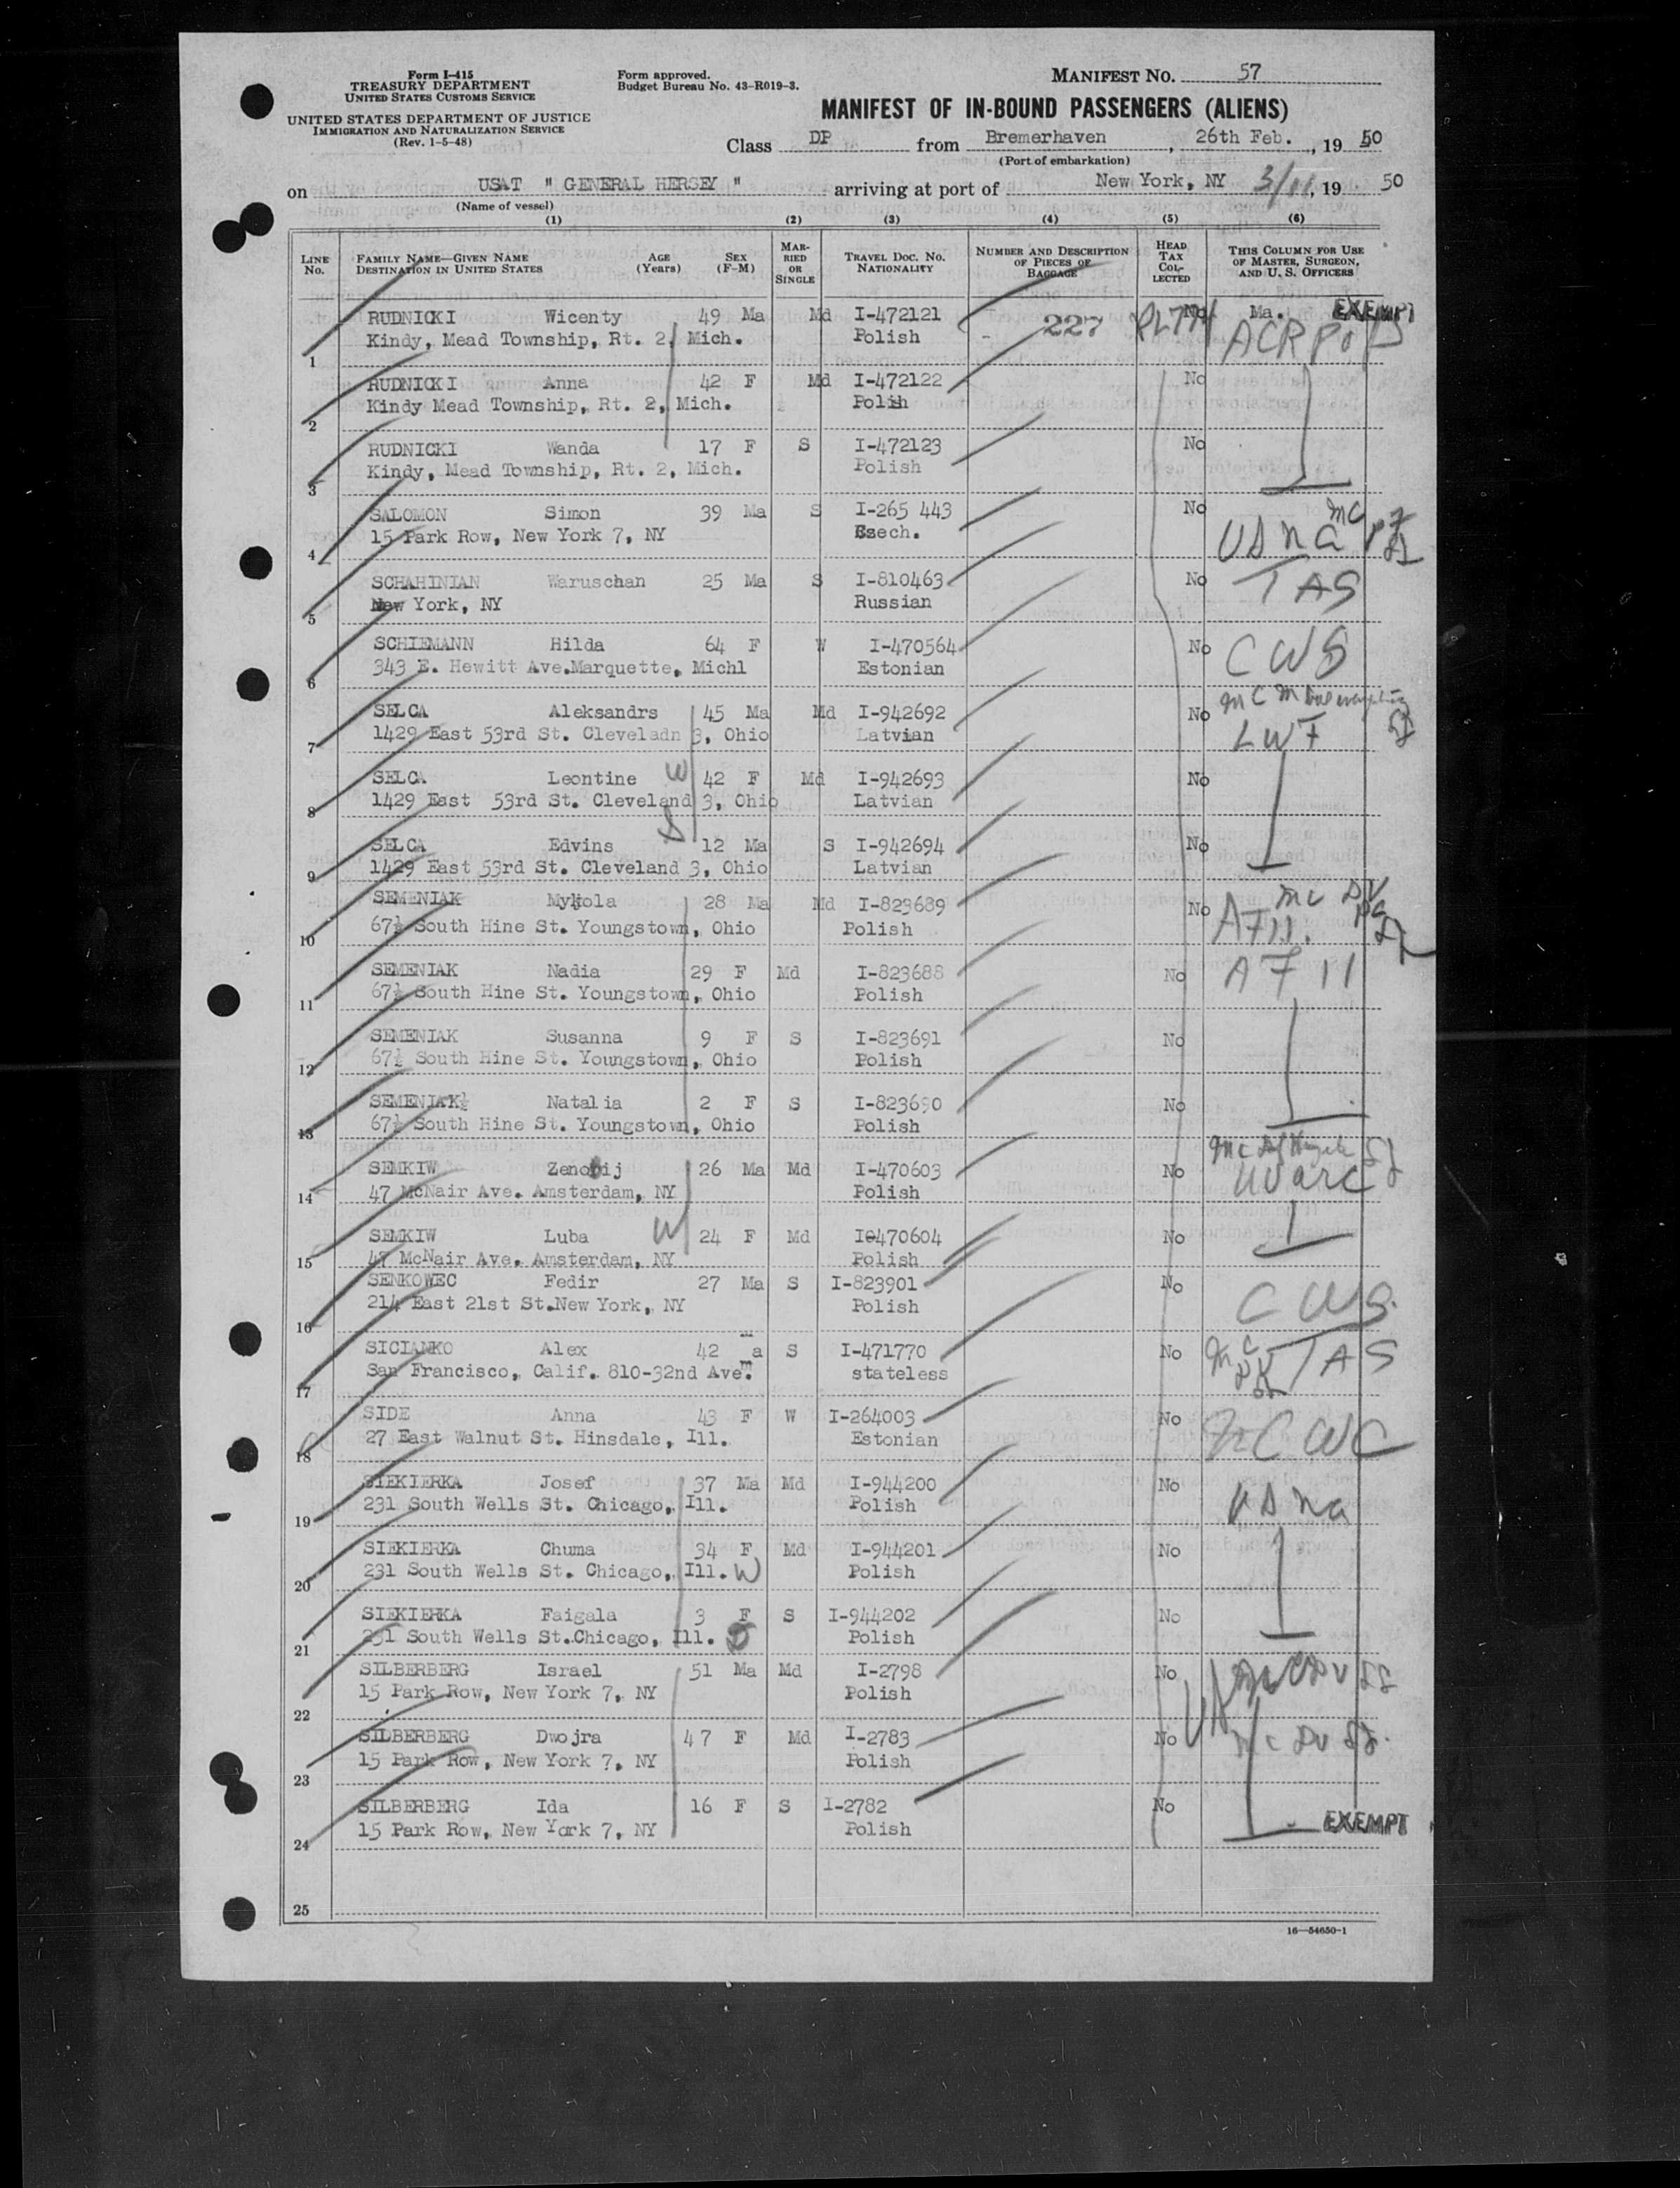 Form I-415
TREASURY DEPARTMENT
UNITED STATES CUSTOMS SERVICE
UNITED STATES DEPARTMENT OF JUSTICE
IMMIGRATION AND NATURALIZATION SERVICE
(Rev. 1-5-48)
Form approved.
Budget Bureau No. 43-R019-3.
MANIFEST NO. 57
MANIFEST OF IN-BOUND PASSENGERS (ALIENS)
Class DP from Bremerhaven, 26th Feb., 19 50
(Port of embarkation)
on USAT " GENERAL HERSEY " arriving at port of New York, NY 3/11, 19 50
(Name of vessel)
(1) (2) (3) (4) (5) (6)
LINE No.
FAMILY NAME—GIVEN NAME AGE SEX
DESTINATION IN UNITED STATES (Years) (F-M)
MARRIED OR SINGLE
TRAVEL DOC. NO.
NATIONALITY
NUMBER AND DESCRIPTION OF PIECES OF BAGGAGE
HEAD TAX COLLECTED
THIS COLUMN FOR USE OF MASTER, SURGEON, AND U. S. OFFICERS
RUDNICKI Wicenty 49 Ma Md I-472121 227 No Ma. EXEMPT
1 Kindy, Mead Township, Rt. 2, Mich. Polish ACR
RUDNICKI Anna 42 F Md I-472122 No
2 Kindy Mead Township, Rt. 2, Mich. Polish
RUDNICKI Wanda 17 F S I-472123 No
3 Kindy, Mead Township, Rt. 2, Mich. Polish
SALOMON Simon 39 Ma S I-265 443 No mc
4 15 Park Row, New York 7, NY Czech. USna
SCHAHINIAN Waruschan 25 Ma S I-810463 No TAS
5 New York, NY Russian
SCHIEMANN Hilda 64 F W I-470564 No CWS
6 343 E. Hewitt Ave.Marquette, Michl Estonian
SELCA Aleksandrs 45 Ma Md I-942692 No mc
7 1429 East 53rd St. Cleveladn 3, Ohio Latvian LWF
SELCA Leontine W 42 F Md I-942693 No
8 1429 East 53rd St. Cleveland 3, Ohio Latvian
SELCA Edvins 12 Ma S I-942694 No
9 1429 East 53rd St. Cleveland 3, Ohio Latvian
SEMENIAK Mykola 28 Ma Md I-823689 No mc
10 67½ South Hine St. Youngstown, Ohio Polish
SEMENIAK Nadia 29 F Md I-823688 No
11 67½ South Hine St. Youngstown, Ohio Polish
SEMENIAK Susanna 9 F S I-823691 No
12 67½ South Hine St. Youngstown, Ohio Polish
SEMENIAK½ Natalia 2 F S I-823690 No
13 67½ South Hine St. Youngstown, Ohio Polish
SEMKIW Zenobij 26 Ma Md I-470603 No mc
14 47 McNair Ave. Amsterdam, NY Polish
SEMKIW Luba W 24 F Md I0470604 No
15 47 McNair Ave. Amsterdam, NY Polish
SENKOWEC Fedir 27 Ma S I-823901 No CWS
16 214 East 21st St.New York, NY Polish
SICIANKO Alex 42 a S I-471770 No mc TAS
17 San Francisco, Calif. 810-32nd Ave. stateless
SIDE Anna 43 F W I-264003 No
18 27 East Walnut St. Hinsdale, Ill. Estonian
SIEKIERKA Josef 37 Ma Md I-944200 No
19 231 South Wells St. Chicago, Ill. Polish USna
SIEKIERKA Chuma 34 F Md I-944201 No
20 231 South Wells St. Chicago, Ill. W Polish
SIEKIERKA Faigala 3 F S I-944202 No
21 231 South Wells St.Chicago, Ill. Polish
SILBERBERG Israel 51 Ma Md I-2798 No
22 15 Park Row, New York 7, NY Polish
SILBERBERG Dwojra 47 F Md I-2783 No
23 15 Park Row, New York 7, NY Polish
SILBERBERG Ida 16 F S I-2782 No
24 15 Park Row, New York 7, NY Polish EXEMPT
25
16—54650-1